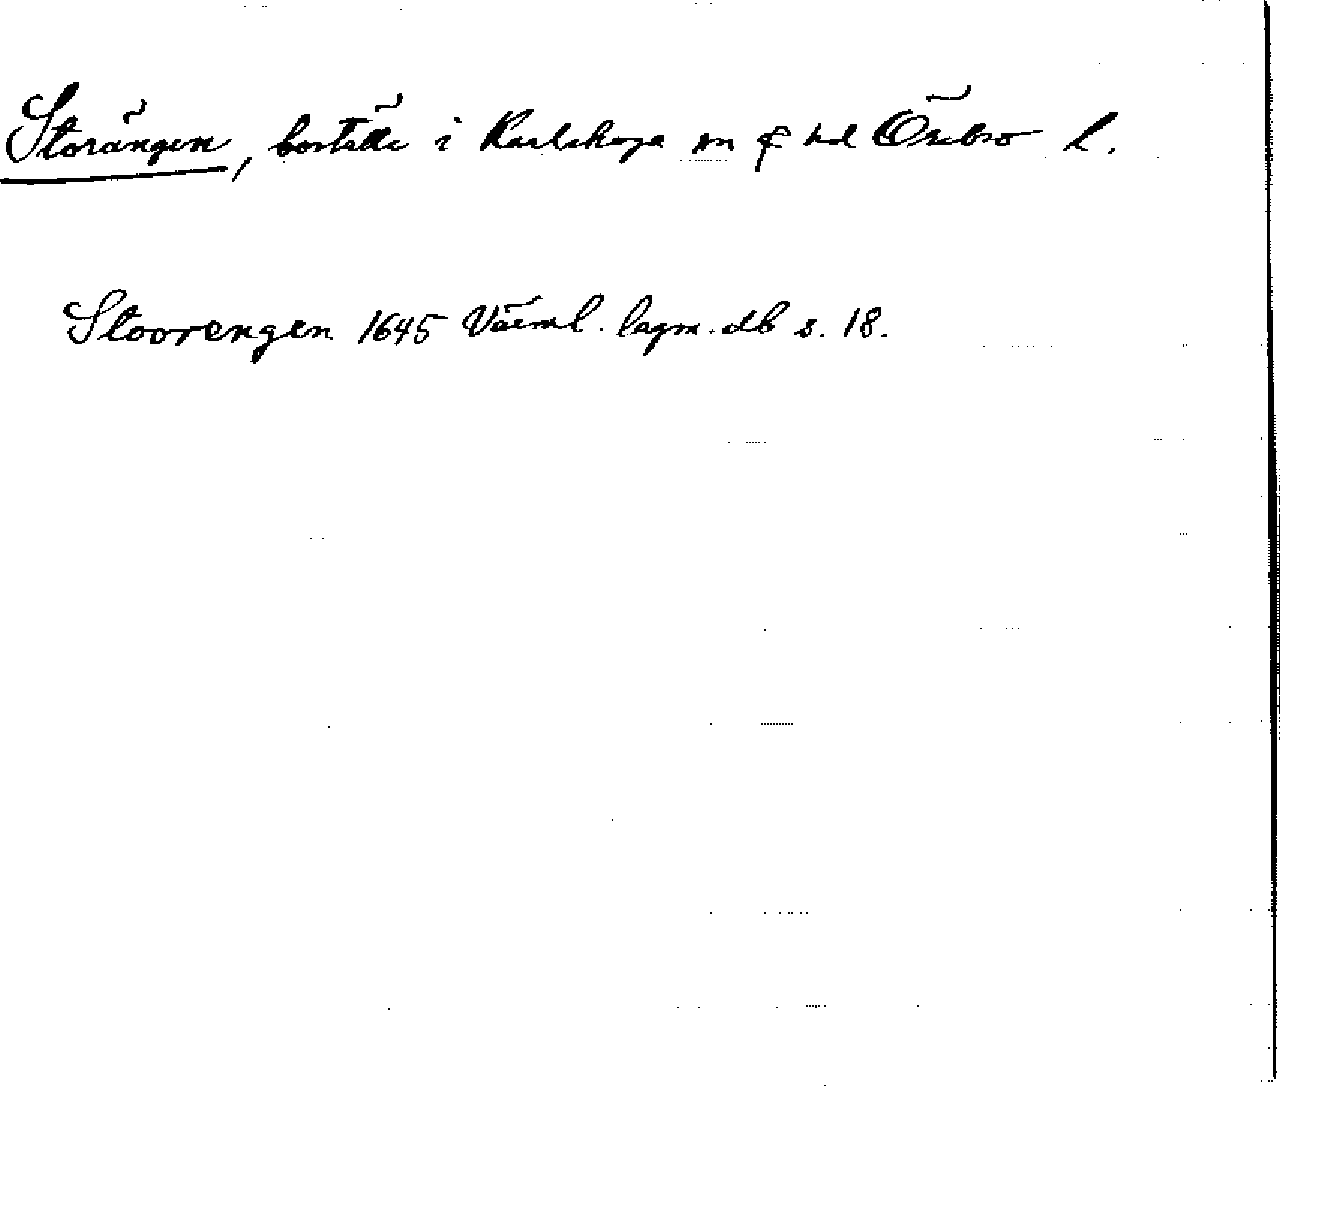 Storängen, boställe i Karlskoga sn o hd Örebro l.
Stoorengen 1645 Värml. lagm. db s. 18.